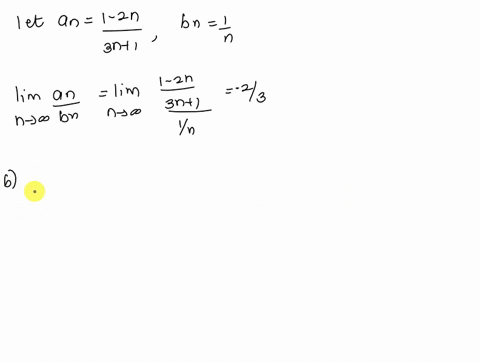 let an = (1-2n)/(3n+1), bn = 1/n
lim n→∞ an/bn = lim n→∞ ((1-2n)/(3n+1))/(1/n) = -2/3
6)